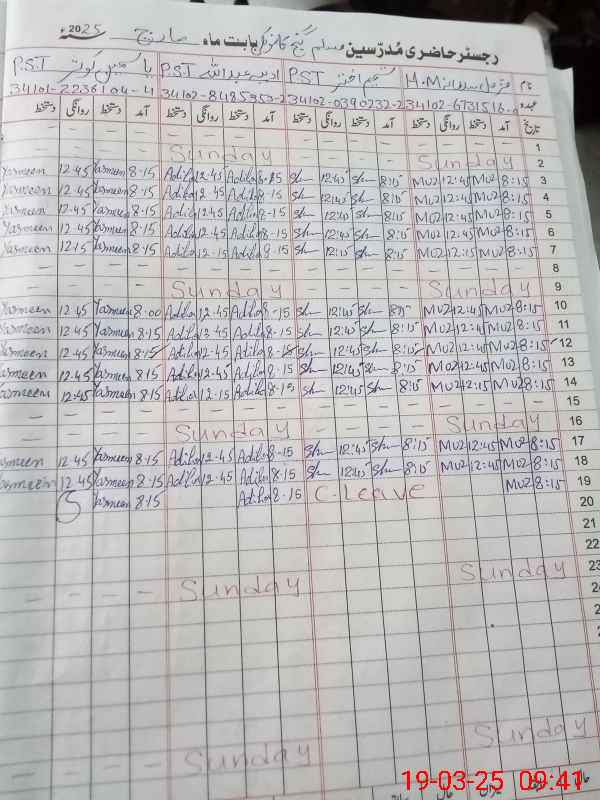 رجسٹر حاضری مُدرّسین مسلم گنج کانوگر بابت ماہ مارچ 2025ء
نام H.M P.S.T P.S.T ادیبہ عبداللہ P.S.T یاسمین کوثر
34101-2236104-4 34102-8485953-2 34102-0390232-2 34102-6731516-
تاریخ آمد دستخط روانگی دستخط آمد دستخط روانگی دستخط آمد دستخط روانگی دستخط آمد دستخط روانگی دستخط
1
Sunday Sunday 2
Yasmeen 12:45 Yasmeen 8-15 Adiba 12:45 Adiba 8-15 Sh 12:45 Sh 8:15 Muz 12:45 Muz 8:15 3
Yasmeen 12:45 Yasmeen 8-15 Adiba 12-45 Adiba 8-15 Sh 12:45 Sh 8:15 Muz 12:45 Muz 8:15 4
Yasmeen 12:45 Yasmeen 8-15 Adiba 12:45 Adiba 8-15 Sh 12:45 Sh 8:15 Muz 12:45 Muz 8:15 5
Yasmeen 12:45 Yasmeen 8-15 Adiba 12-45 Adiba 8-15 Sh 12:45 Sh 8:15 Muz 12:45 Muz 8:15 6
Yasmeen 12-15 Yasmeen 8-15 Adiba 12-15 Adiba 8-15 Sh 12:15 Sh 8:15 Muz 12:15 Muz 8:15 7
8
Sunday Sunday 9
Yasmeen 12 45 Yasmeen 8-00 Adiba 12-45 Adiba 8-15 Sh 12:45 Sh 8:15 Muz 12:45 Muz 8:15 10
Yasmeen 12 45 Yasmeen 8-15 Adiba 12-45 Adiba 8-15 Sh 12:45 Sh 8:15 Muz 12:45 Muz 8:15 11
Yasmeen 12-45 Yasmeen 8-15 Adiba 12-45 Adiba 8-15 Sh 12:45 Sh 8:15 Muz 12:45 Muz 8:15 12
Yasmeen 12-45 Yasmeen 8-15 Adiba 12-45 Adiba 8-15 Sh 12:45 Sh 8:15 Muz 12:45 Muz 8:15 13
Yasmeen 12:45 Yasmeen 8-15 Adiba 12-15 Adiba 8-15 Sh 12:45 Sh 8:15 Muz 12:15 Muz 8:15 14
15
Sunday Sunday 16
Yasmeen 12-45 Yasmeen 8-15 Adiba 12-45 Adiba 8-15 Sh 12:45 Sh 8:15 Muz 12:45 Muz 8:15 17
Yasmeen 12-45 Yasmeen 8-15 Adiba 12-45 Adiba 8-15 Sh 12:45 Sh 8:15 Muz 12:45 Muz 8:15 18
Yasmeen 8-15 Adiba 8-15 C.Leave Muz 8:15 19
20
21
22
Sunday Sunday 23
Sunday Sunday
19-03-25 09:41